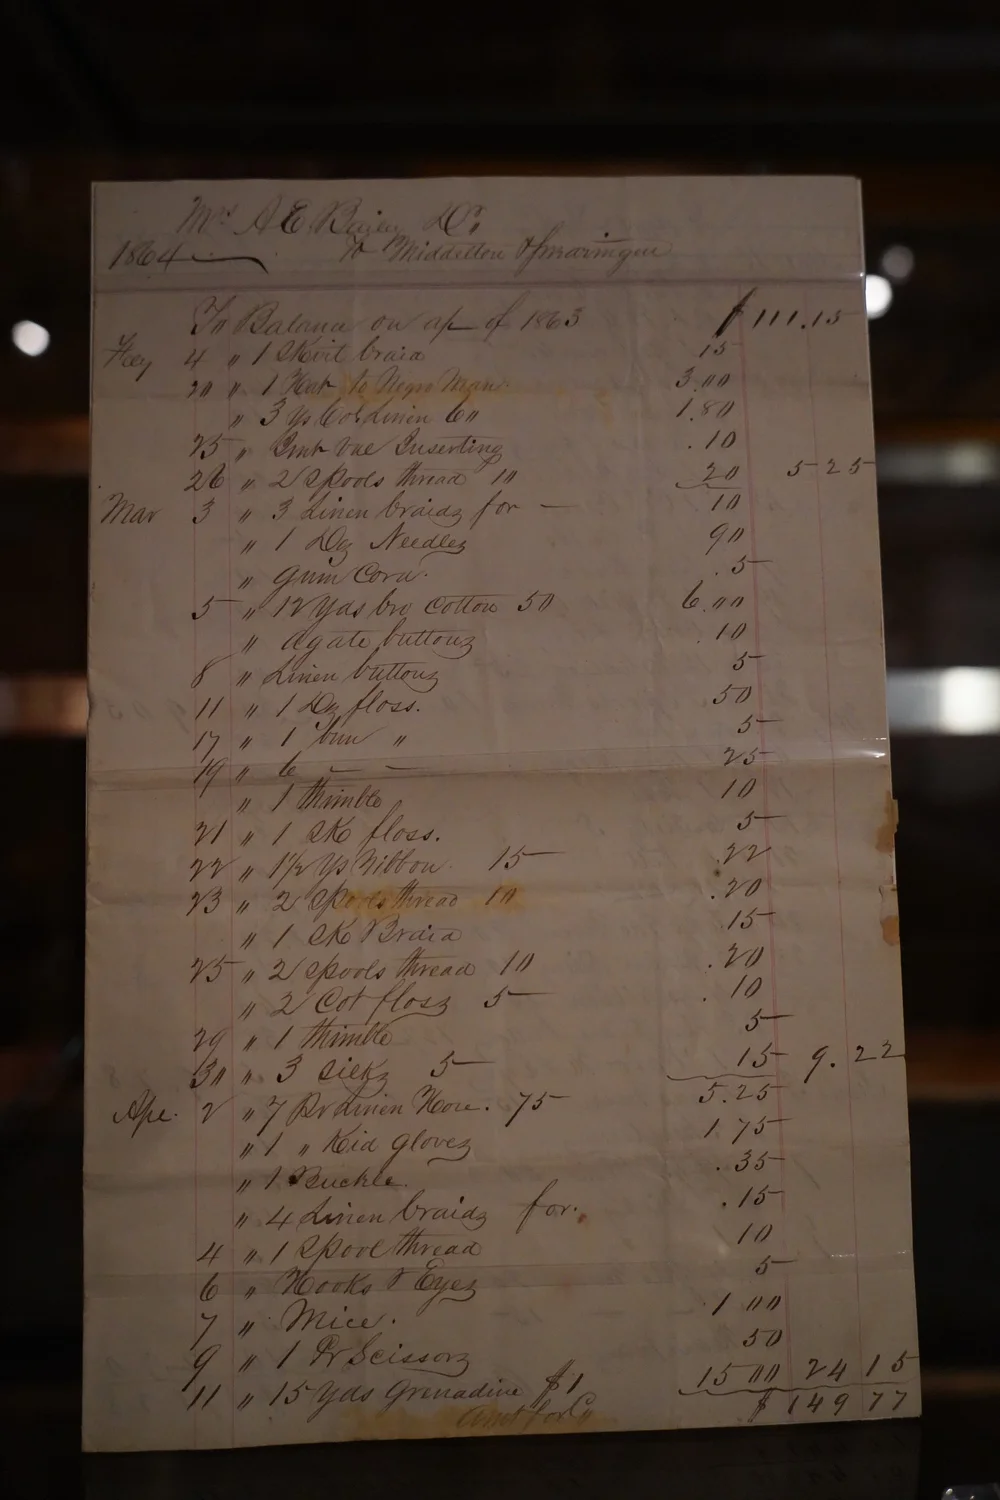 Mrs A E Bailey Dr.
1864 To Middelton &
To Balance on ap of 1863 $ 111.15
Feby 4 " 1 Skirt braid 15
20 " 1 Hat to Negro Man. 3.00
" 3 Ys Cold Linen 60 1.80
25 " Inserting .10
26 " 2 Spools thread 10 20 5 25
Mar 3 " 3 Linen braids for — 10
" 1 Dz Needles 90
" Gum Cord. .5
5 " 12 Yds bro Cotton 50 6.00
" Agate buttons .10
8 " Linen buttons 5
11 " 1 Dz floss. 50
17 " 1 bun " 5
19 " 6 — — 25
" 1 thimble 10
21 " 1 SK floss. 5
22 " 1 1/2 Ys Ribbon. 15 .22
23 " 2 Spools thread 10 .20
" 1 SK Braid 15
25 " 2 Spools thread 10 .20
" 2 Cot floss 5 .10
29 " 1 thimble 5
30 " 3 Silks 5 15 9.22
Apl. 2 " 7 Pr Linen Hose. 75 5.25
" 1 " Kid gloves 1 75
" 1 Buckle. .35
" 4 Linen braids for. .15
4 " 1 Spool thread 10
6 " Hooks & Eyes 5
7 " Mdce. 1 00
9 " 1 Pr Scissors 50
11 " 15 Yds Grenadine $1 15 00 24 15
Amt for $ 149 77